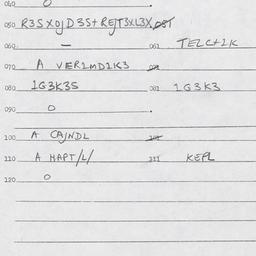 040 0
050 R3SX0JD3S+REJT3XL3X. 051
060 — 061 TELC+1K
070 A VER1MD1K3 071
080 1G3K3S 081 1G3K3
0
100 A CAJNDL 101
110 A MAPT/L/ 111 KEPL
120 0